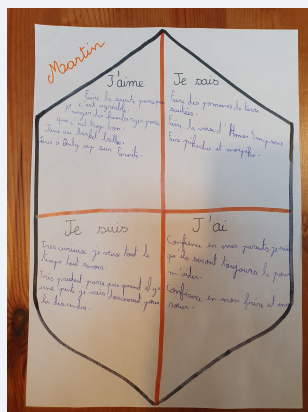 Martin
J'aime
Faire la sieste parce que
c'est agréable.
Manger des hamburgers parce
que c'est trop bon.
Jouer au basket balle.
Jouer à Baby up sur
Je sais
Faire des pommes de terre
sautées.
Faire la voix d'Homer Simpsons
Faire pikachu et
Je suis
Très curieux je veux tout le
temps tout savoir.
Très prudent parce que quand il y a
une pente je vais doucement pour
la descendre.
J'ai
Confiance en mes parents je sais
qu'ils seront toujours là pour
m'aider.
Confiance en mon frère et ma
sœur.